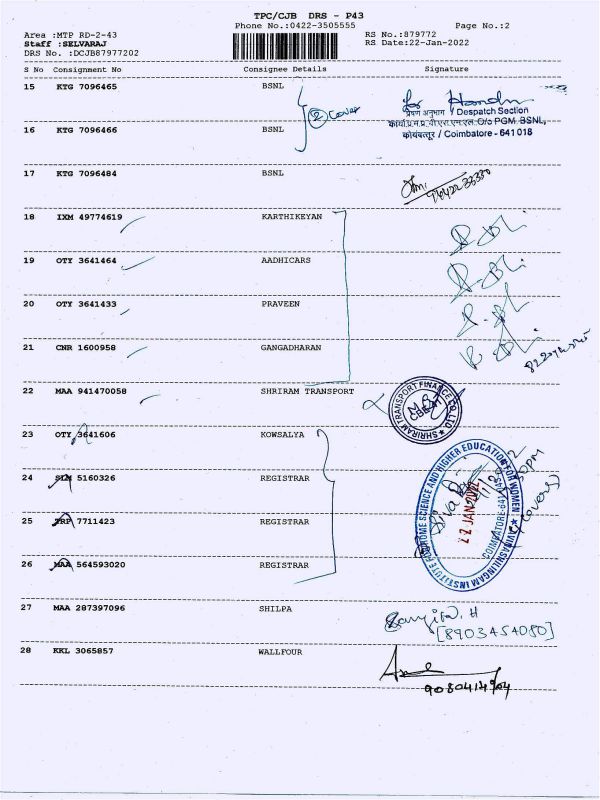 TPC/CJB DRS - P43
Phone No.:0422-3505555 Page No.:2
Area :MTP RD-2-43 RS No.:879772
Staff :SELVARAJ RS Date:22-Jan-2022
DRS No. :DCJB87977202
S No Consignment No Consignee Details Signature
15 KTG 7096465 BSNL
2 Cover
प्रेषण अनुभाग / Despatch Section
O/o PGM BSNL,
कोयंबत्तूर / Coimbatore - 641 018
16 KTG 7096466 BSNL
17 KTG 7096484 BSNL
18 IXM 49774619 KARTHIKEYAN
19 OTY 3641464 AADHICARS
20 OTY 3641433 PRAVEEN
21 CNR 1600958 GANGADHARAN
22 MAA 941470058 SHRIRAM TRANSPORT
SHRIRAM TRANSPORT FINANCE CO. LTD
23 OTY 3641606 KOWSALYA
24 SLM 5160326 REGISTRAR
25 TRP 7711423 REGISTRAR
26 MAA 564593020 REGISTRAR
AVINASHILINGAM INSTITUTE FOR HOME SCIENCE AND HIGHER EDUCATION FOR WOMEN
COIMBATORE-641 043
22 JAN 2022
27 MAA 287397096 SHILPA
[8903454080]
28 KKL 3065857 WALLFOUR